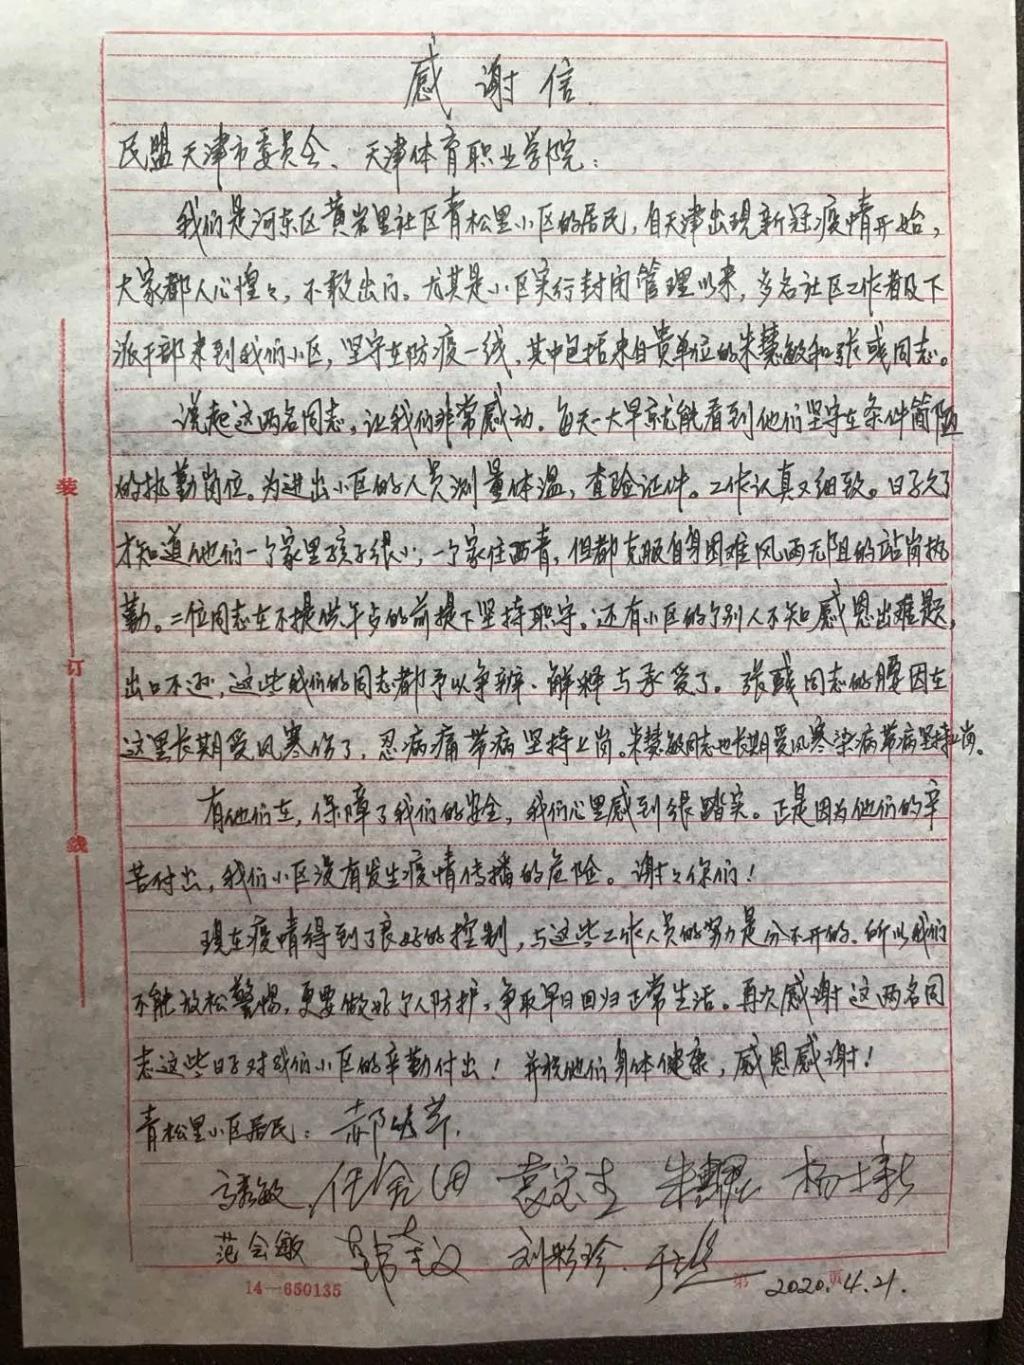 感谢信
民盟天津市委员会、天津体育职业学院：
我们是河东区黄岩里社区青松里小区的居民，自天津出现新冠疫情开始，
大家都人心惶々，不敢出门。尤其是小区实行封闭管理以来，多名社区工作者及下
派干部来到我们小区，坚守在防疫一线，其中包括来自贵单位的朱慧敏和张彧同志。
说起这两名同志，让我们非常感动。每天一大早就能看到他们坚守在条件简陋
的执勤岗位。为进出小区的人员测量体温，查验证件。工作认真又细致。日子久了
才知道他们一个家里孩子很小，一个家住西青，但都克服自身困难风雨无阻的站岗执
勤。二位同志在不提供午歺的前提下坚持职守。还有小区的个别人不知感恩出难题，
出口不逊，这些我们的同志都予以争辨、解释与承受了。张彧同志的腰因在
这里长期受风寒伤了，忍病痛带病坚持上岗。朱慧敏同志也长期受风寒染病带病坚持上岗。
有他们在，保障了我们的安全，我们心里感到很踏实。正是因为他们的辛
苦付出，我们小区没有发生疫情传播的危险。谢々你们！
现在疫情得到了良好的控制，与这些工作人员的努力是分不开的。所以我们
不能放松警惕，更要做好个人防护，争取早日回归正常生活。再次感谢这两名同
志这些日子对我们小区的辛勤付出！并祝他们身体健康，感恩感谢！
青松里小区居民：郝
敏 任 袁 朱 杨
范会敏 韩 刘彩珍 于
装订线
14—650135
第 页 2020.4.21.